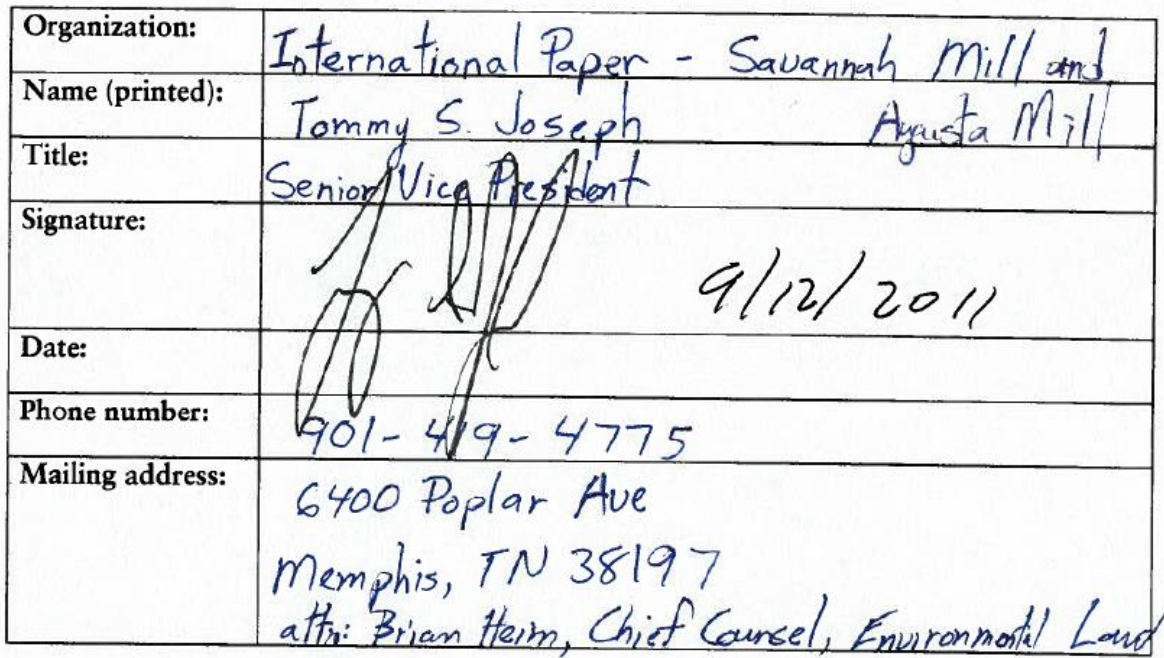 Organization: International Paper - Savannah Mill and
Name (printed): Tommy S. Joseph Augusta Mill
Title: Senior Vice President
Signature: 9/12/2011
Date:
Phone number: 901-419-4775
Mailing address: 6400 Poplar Ave
Memphis, TN 38197
attn: Brian Heim, Chief Counsel, Environmental